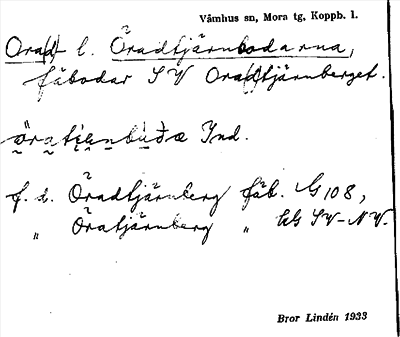 Våmhus sn, Mora tg, Koppb. l.
Ora(d)- l. Öradtjärnbodarna,
fäbodar SV Ora(d)tjärnberget.
Ind.
f. d. Öradtjärnberg fäb. G 108,
" Öratjärnberg " EG SV-NV.
Bror Lindén 1933